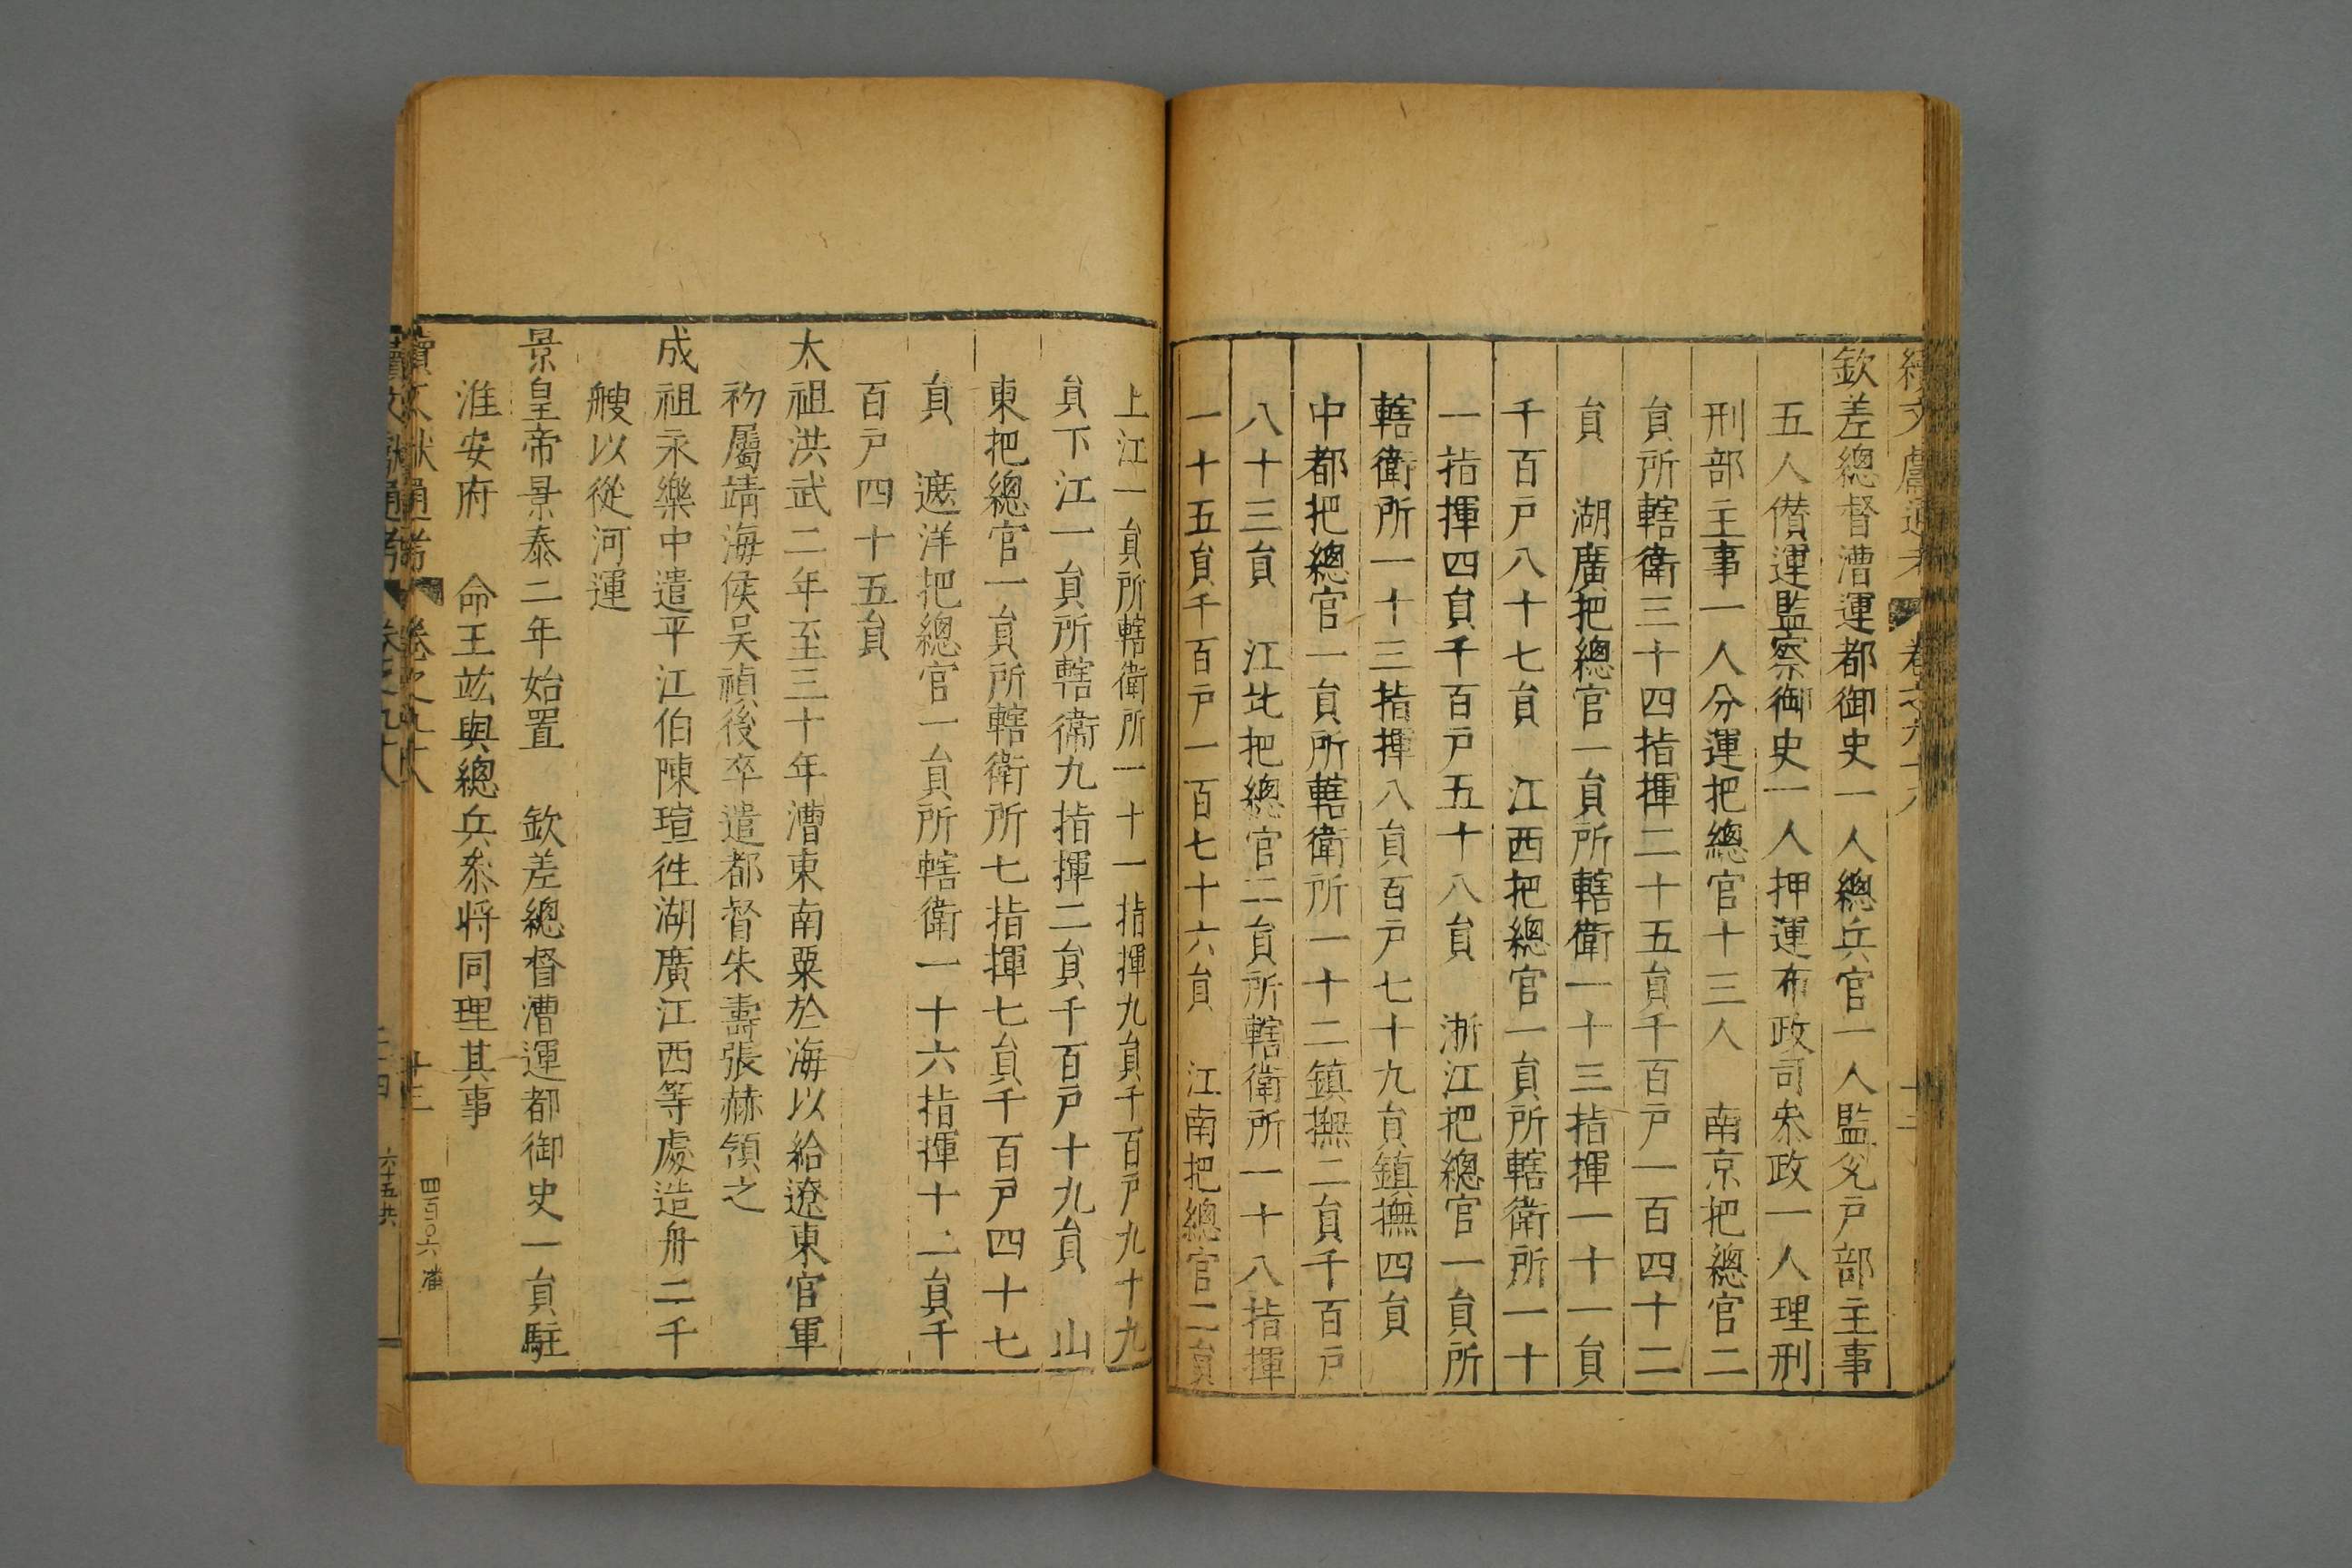 欽差總督漕運都御史一人總兵官一人監兌戸部主事
五人儧運監察御史一人押運布政司叅政一人理刑
刑部主事一人分運把總官十三人　南京把總官二
員所轄衛三十四指揮二十五員千百戸一百四十二
員　湖廣把總官一員所轄衛一十三指揮一十一員
千百戸八十七員　江西把總官一員所轄衛所一十
一指揮四員千百戸五十八員　浙江把總官一員所
轄衛所一十三指揮八員百戸七十九員鎮撫四員
中都把總官一員所轄衛所一十二鎮撫二員千百戸
八十三員　江北把總官二員所轄衛所一十八指揮
一十五員千百戸一百七十六員　江南把總官二員
上江一員所轄衛所一十一指揮九員千百戸九十九
員下江一員所轄衛九指揮二員千百戸十九員　山
東把總官一員所轄衛所七指揮七員千百戸四十七
員　遮洋把總官一員所轄衛一十六指揮十二員千
百戸四十五員
太祖洪武二年至三十年漕東南粟於海以給遼東官軍
初屬靖海侯吴禎後卒遣都督朱壽張赫領之
成祖永樂中遣平江伯陳瑄徃湖廣江西等處造舟二千
艘以從河運
景皇帝景泰二年始置　欽差總督漕運都御史一員駐
淮安府　命王竑與總兵叅将同理其事
續文獻通考　卷之九十八　十三　四百〇六